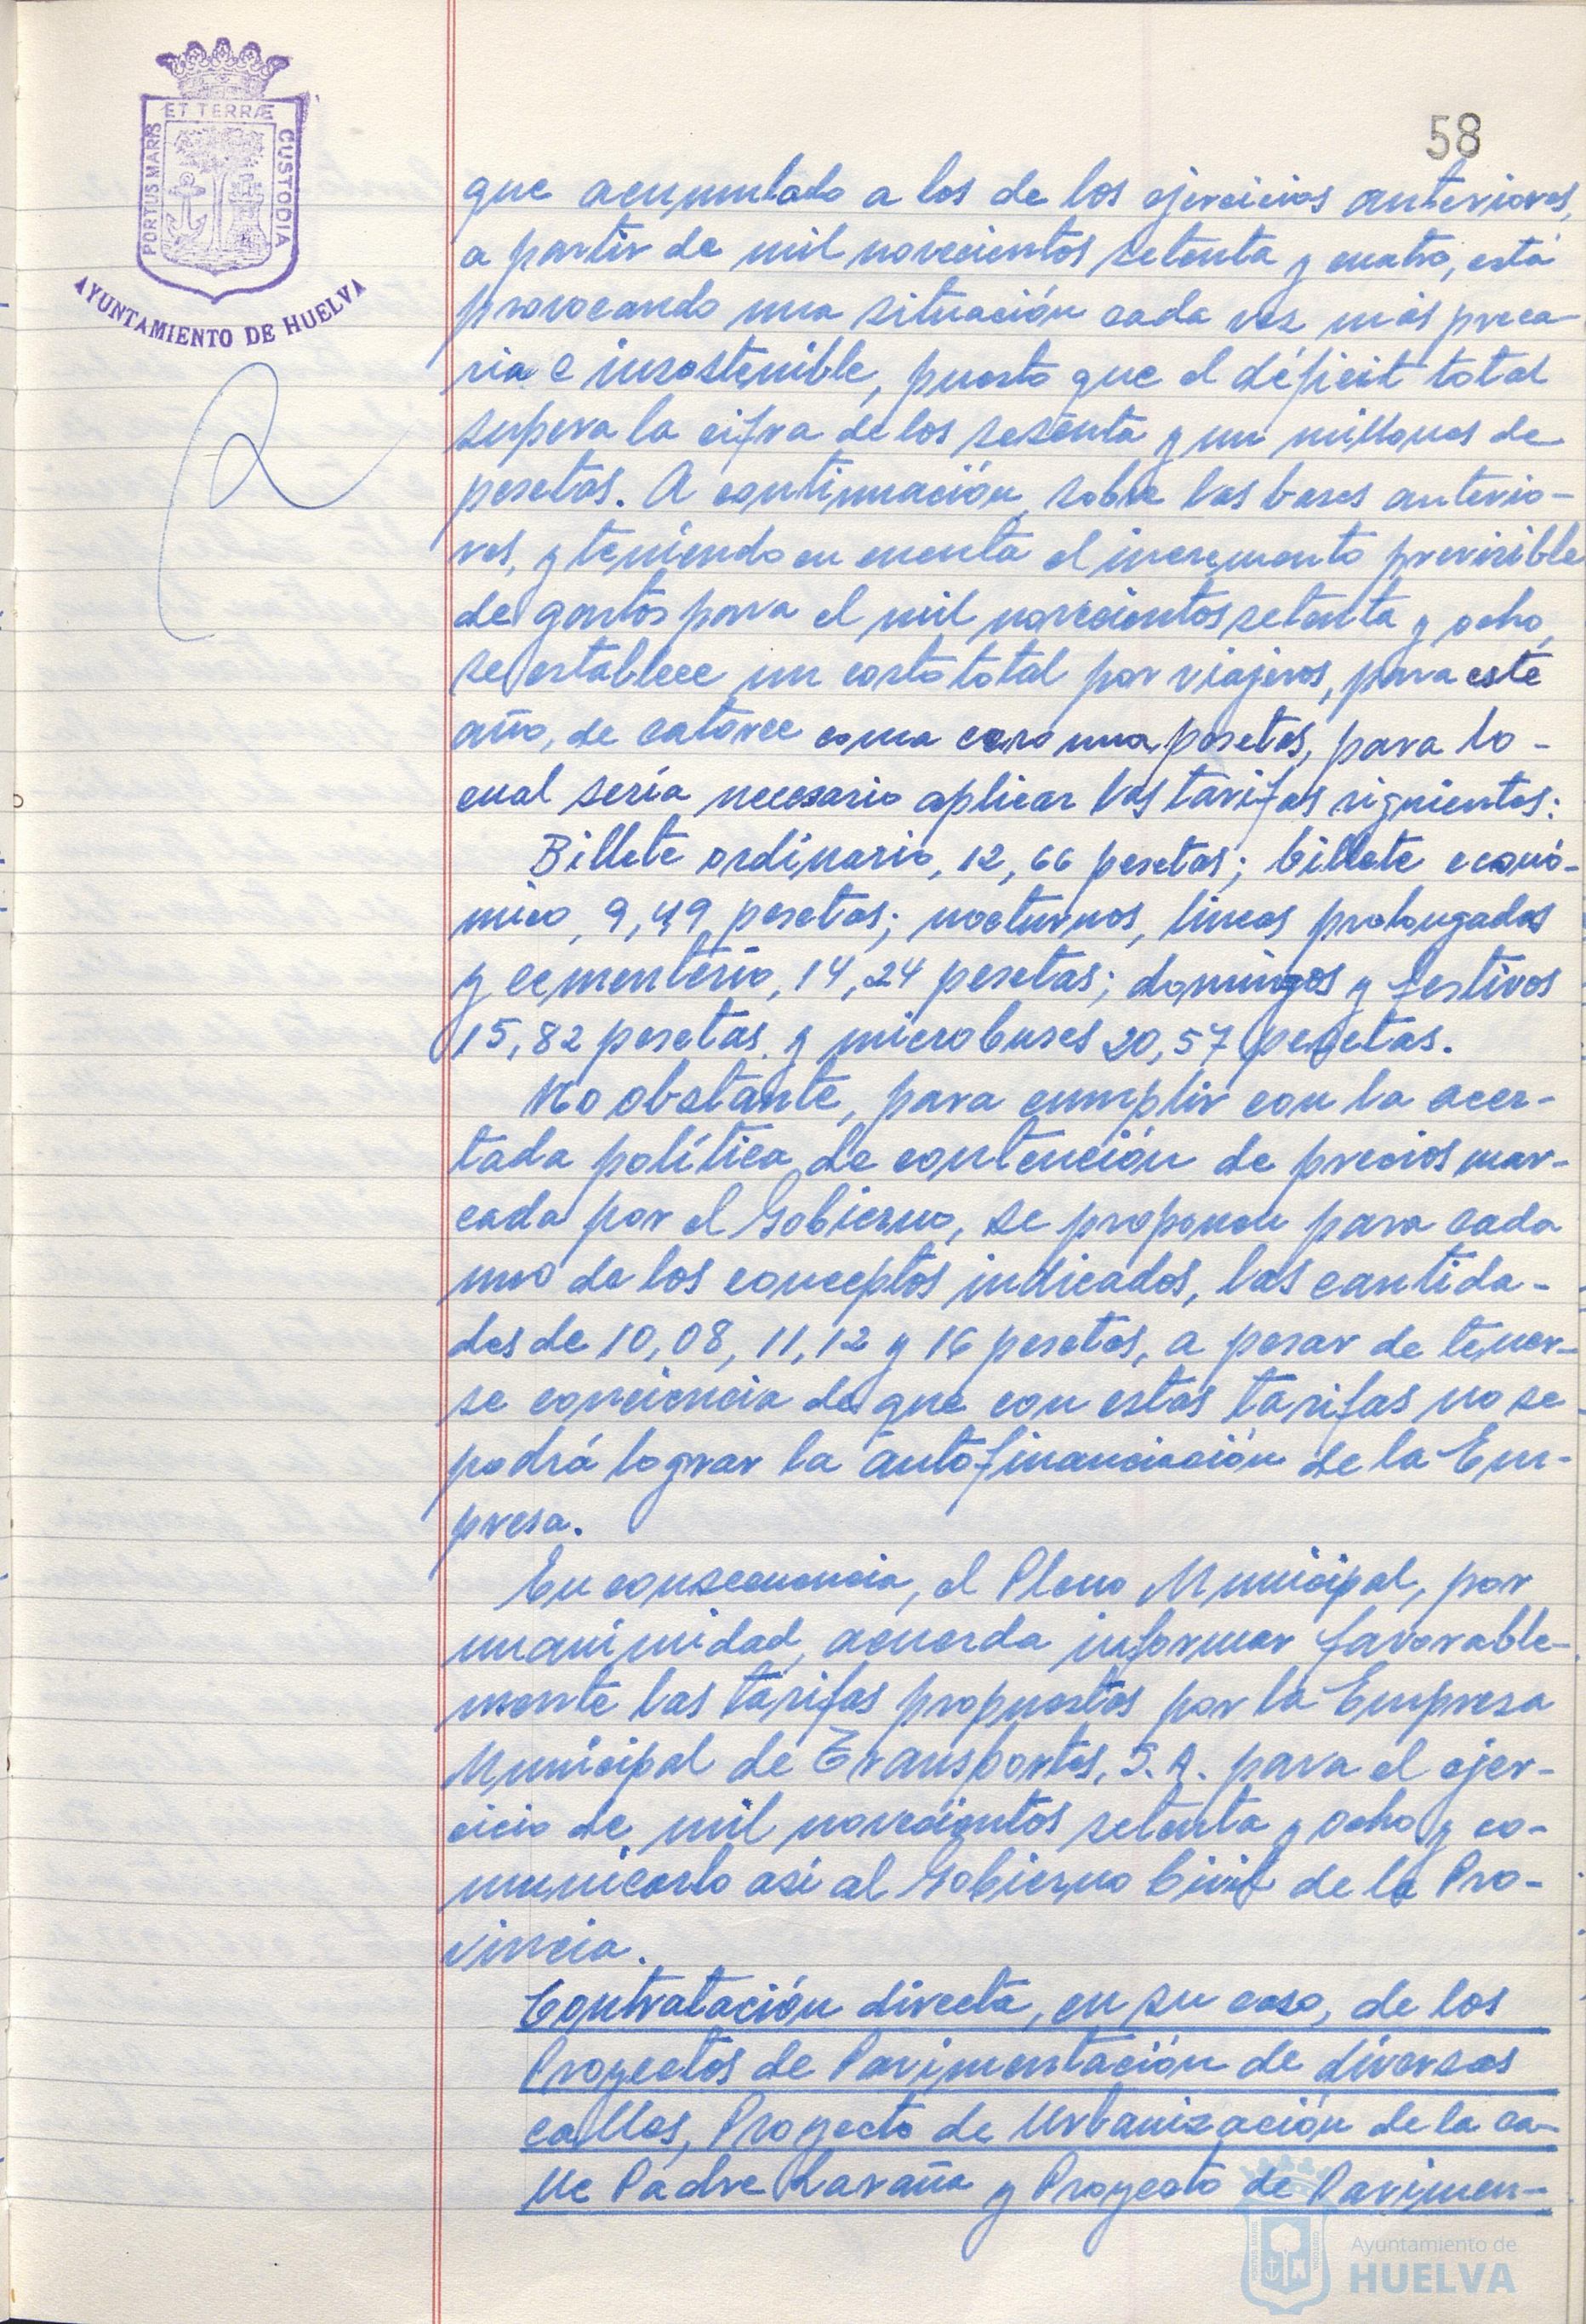 ET TERRÆ
PORTUS MARIS
CUSTODIA
AYUNTAMIENTO DE HUELVA
58
que acumulado a los de los ejercicios anteriores,
a partir de mil novecientos setenta y cuatro, está
provocando una situación cada vez más preca-
ria e insostenible, puesto que el déficit total
supera la cifra de los sesenta y un millones de
pesetas. A continuación, sobre las bases anterio-
res, y teniendo en cuenta el incremento previsible
de gastos para el mil novecientos setenta y ocho,
se establece un costo total por viajeros, para este
año, de catorce coma cero una pesetas, para lo-
cual sería necesario aplicar las tarifas siguientes:
Billete ordinario, 12,66 pesetas; billete econó-
mico, 9,49 pesetas; nocturnos, líneas prolongadas
y cementerio, 14,24 pesetas; domingos y festivos
15,82 pesetas y microbuses 20,57 pesetas.
No obstante, para cumplir con la acer-
tada política de contención de precios mar-
cada por el Gobierno, se proponen para cada
uno de los conceptos indicados, las cantida-
des de 10,08, 11,12 y 16 pesetas, a pesar de tener-
se conciencia de que con estas tarifas no se
podrá lograr la autofinanciación de la Em-
presa.
En consecuencia, el Pleno Municipal, por
unanimidad, acuerda informar favorable-
mente las tarifas propuestas por la Empresa
Municipal de Transportes, S.A. para el ejer-
cicio de mil novecientos setenta y ocho y co-
municarlo así al Gobierno Civil de la Pro-
vincia.
Contratación directa, en su caso, de los
Proyectos de Pavimentación de diversas
calles, Proyecto de Urbanización de la ca-
lle Padre Laraña y Proyecto de Pavimen-
Ayuntamiento de
HUELVA